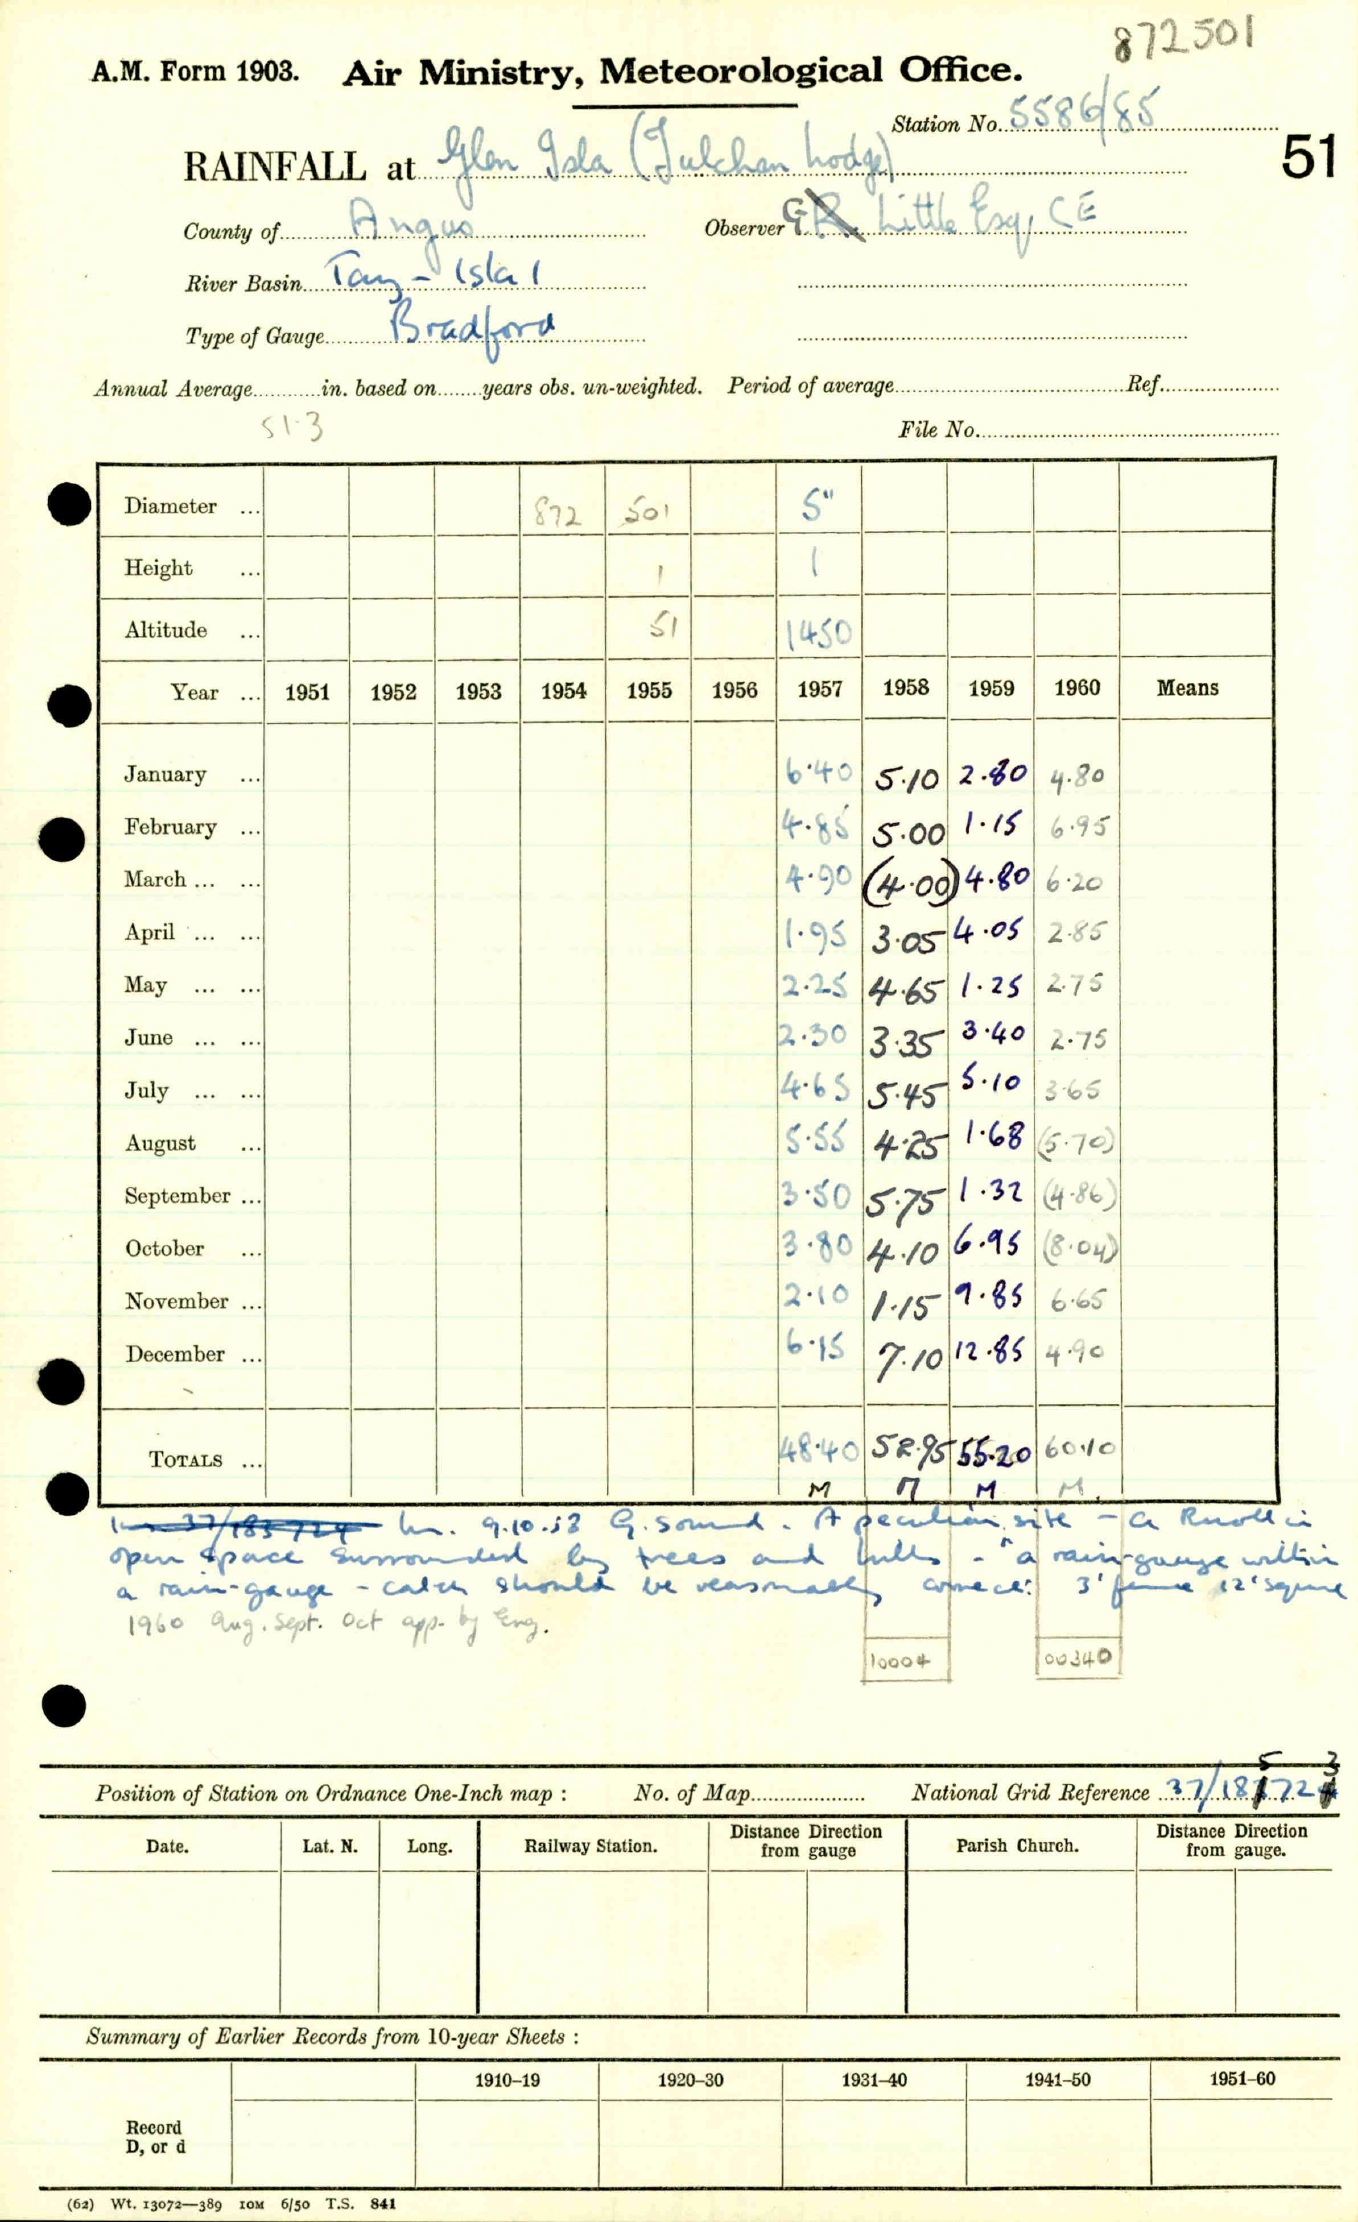 872501
A.M. Form 1903. Air Ministry, Meteorological Office.
Station No. 5586/85
51
RAINFALL at Glen Isla (Tulchan Lodge)
County of Angus Observer G Little Esq, CE
River Basin Tay - Isla 1
Type of Gauge Bradford
Annual Average in. based on years obs. un-weighted. Period of average Ref.
51.3
File No.
Diameter ... 872 501 5"
Height ... 1 1
Altitude ... 51 1450
Year ... 1951 1952 1953 1954 1955 1956 1957 1958 1959 1960 Means
January ... 6.40 5.10 2.80 4.80
February ... 4.85 5.00 1.15 6.95
March ... ... 4.90 (4.00) 4.80 6.20
April ... ... 1.95 3.05 4.05 2.85
May ... ... 2.25 4.65 1.25 2.75
June ... ... 2.30 3.35 3.40 2.75
July ... ... 4.65 5.45 5.10 3.65
August ... 5.55 4.25 1.68 (5.70)
September ... 3.50 5.75 1.32 (4.86)
October ... 3.80 4.10 6.95 (8.04)
November ... 2.10 1.15 9.85 6.65
December ... 6.15 7.10 12.85 4.90
TOTALS ... 48.40 52.95 55.20 60.10
M M M M
37/183724 In. 9.10.53 G. sound. A peculiar site - a knoll in
open space surrounded by trees and hills - "a rain-gauge within
a rain-gauge - catch should be reasonably correct." 3' fence 12' square
1960 Aug. Sept. Oct app. by Eng.
10004 00340
5 3
Position of Station on Ordnance One-Inch map : No. of Map National Grid Reference 37/18 72
Date. Lat. N. Long. Railway Station. Distance Direction from gauge Parish Church. Distance Direction from gauge.
Summary of Earlier Records from 10-year Sheets :
1910–19 1920–30 1931–40 1941–50 1951–60
Record
D, or d
(62) Wt. 13072—389 10M 6/50 T.S. 841